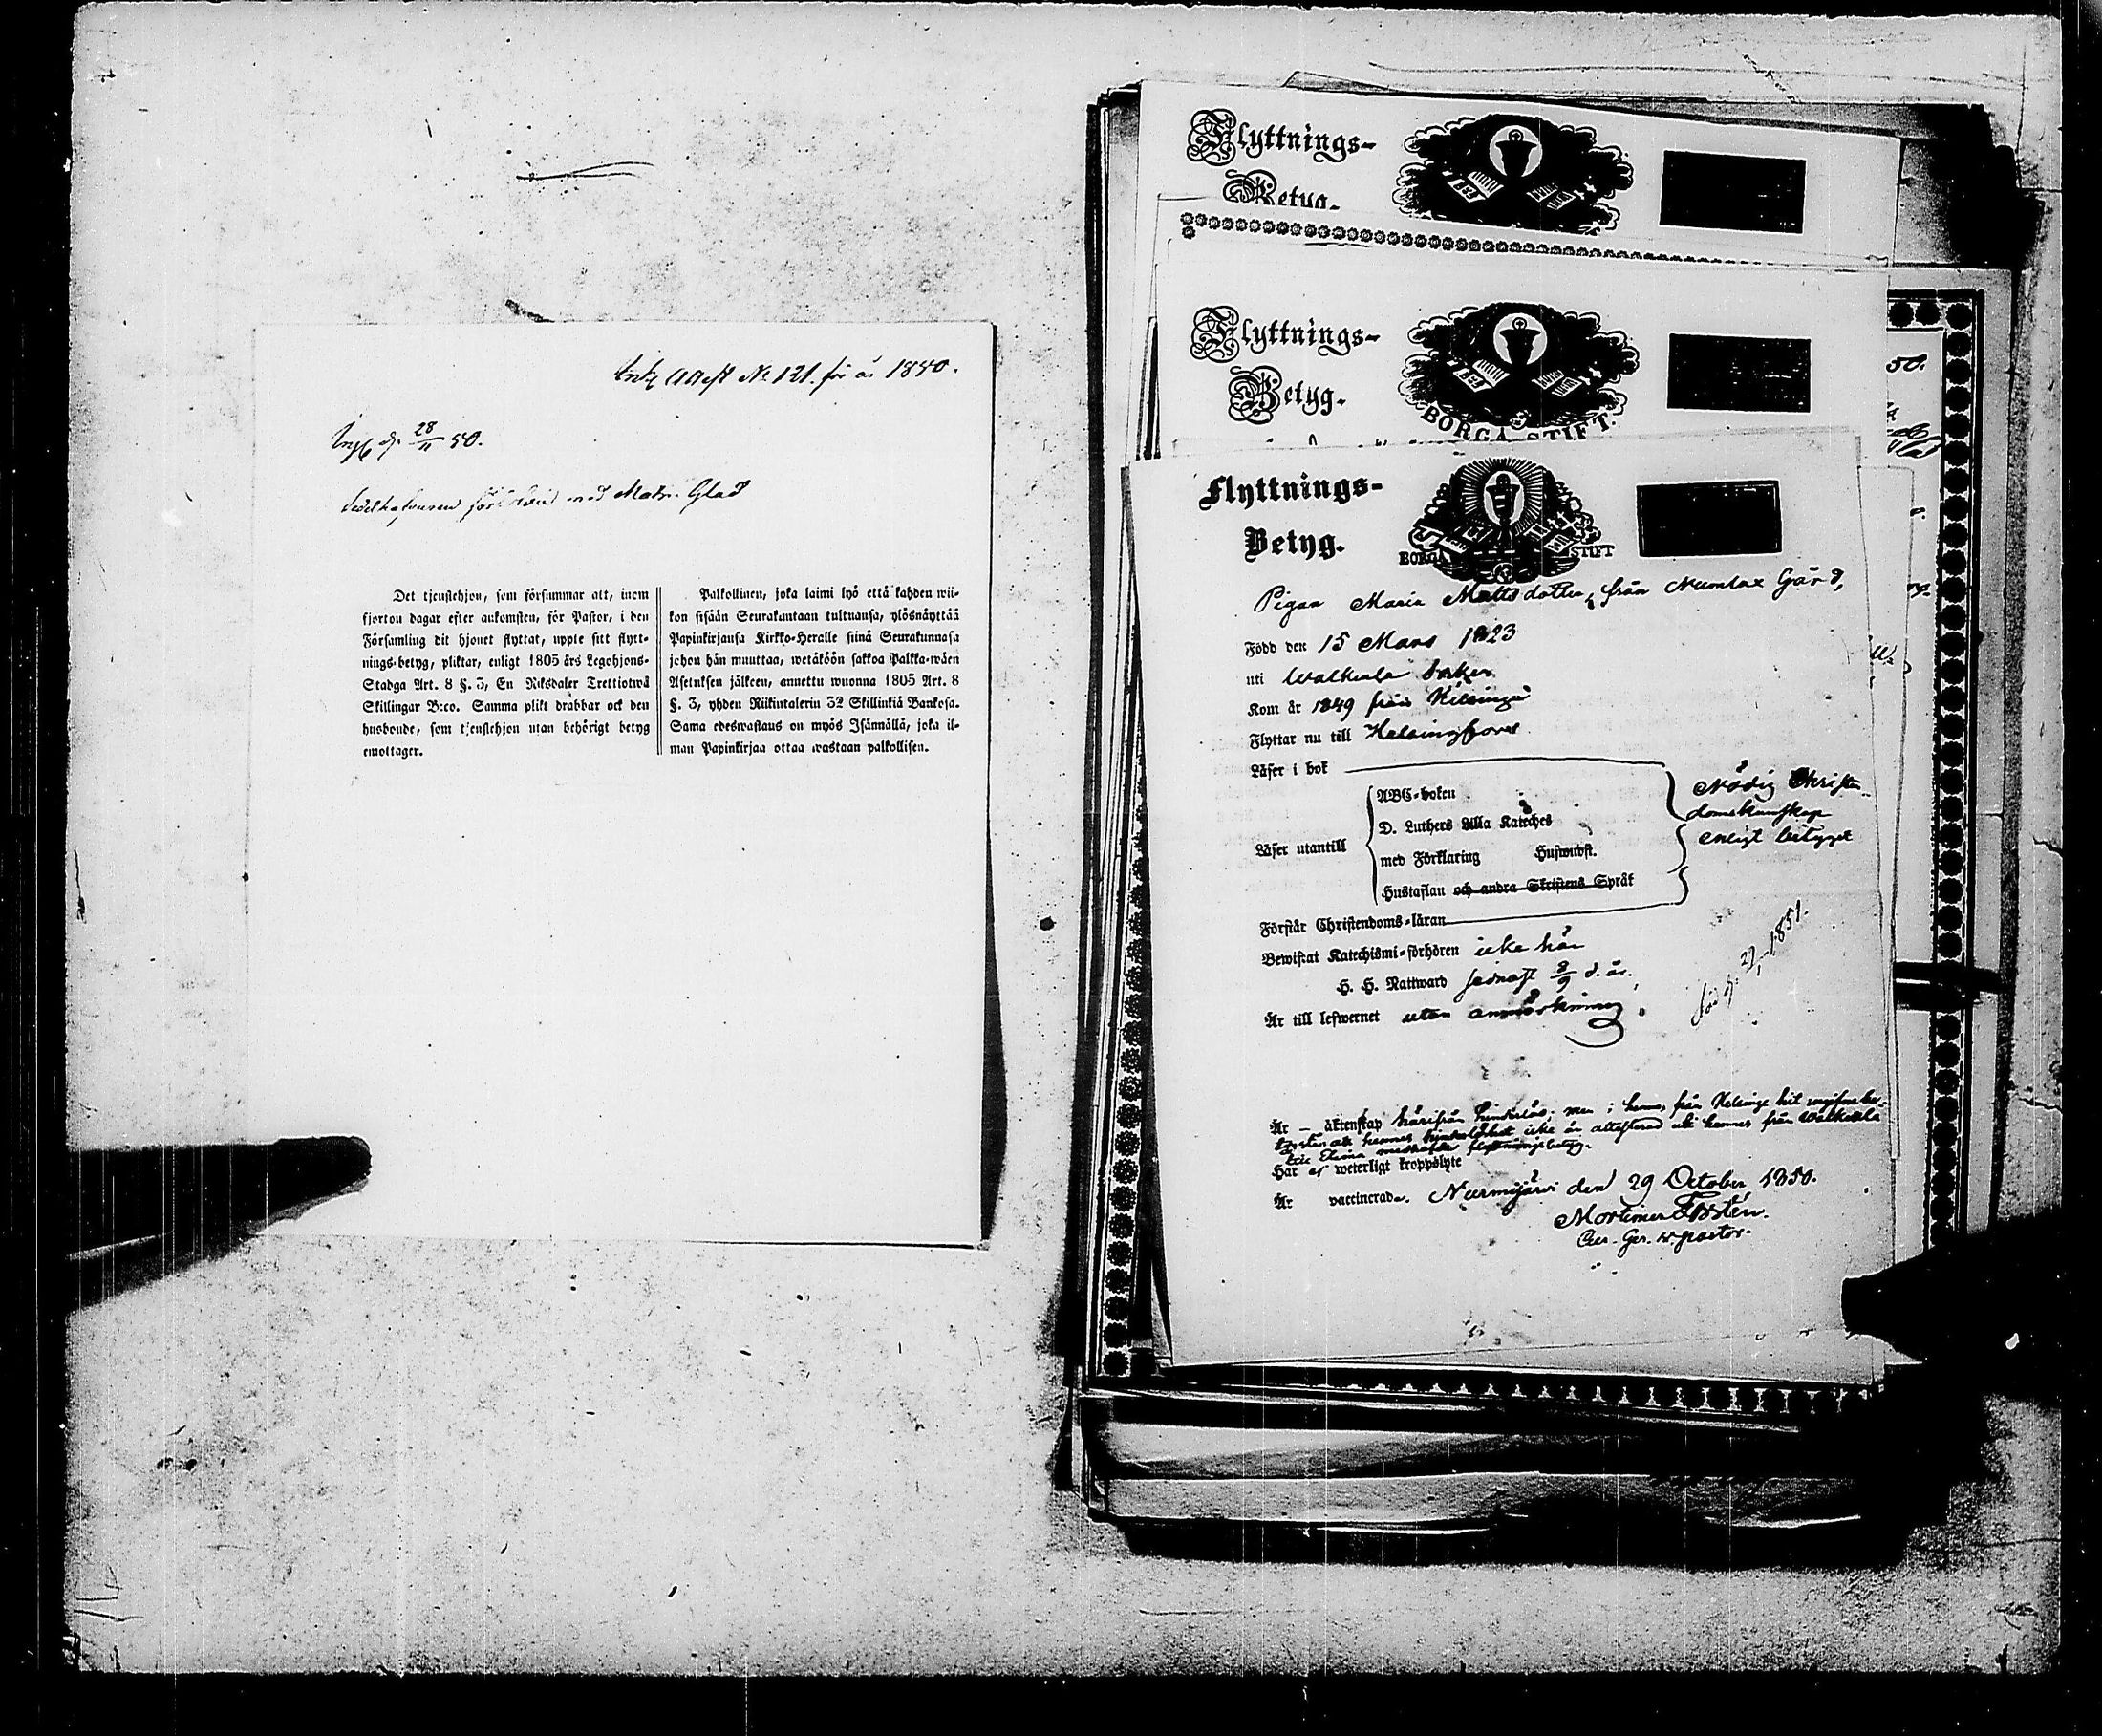 Attest No 121. för år 1850.
28/11 50.
med Matr. Glad
Det tjenstehjon, som försummar att, inom
fjorton dagar efter ankomsten, för Pastor, i den
Församling dit hjonet flyttat, uppte sitt flytt-
nings-betyg, pliktar, enligt 1805 års Legohjons-
Stadga Art. 8 §. 3, En Riksdaler Trettiotwå
Skillingar B:co. Samma plikt drabbar ock den
husbonde, som tjenstehjon utan behörigt betyg
emottager.
Palkollinen, joka laimi lyö että kahden wii-
kon sisään Seurakuntaan tultuansa, ylösnäyttää
Papinkirjansa Kirkko-Herralle siinä Seurakunnasa
johon hän muuttaa, wetäköön sakkoa Palkka-wäen
Asetuksen jälkeen, annettu wuonna 1805 Art. 8
§. 3, yhden Riikintalerin 32 Skillinkiä Bankosa.
Sama edeswastaus on myös Isännällä, joka il-
man Papinkirjaa ottaa wastaan palkollisen.
Flyttnings-
Betyg.
Flyttnings-
Betyg.
BORGÅ STIFT.
50.
Flyttnings-
Betyg.
BORGÅ STIFT
Pigan Maria Mattsdotter, från Numlax Gård,
Född den 15 Mars 1823
uti Walkiala Socken
Kom år 1849 från Helsinge
Flyttar nu till Helsingfors.
Läser i bok
ABC-boken
D. Luthers Lilla Kateches
Läser utantill
med Förklaring Huswudst.
Hustaflan och andra Skriftens Språk
Nödig Christen-
domskunskap
enligt betyget
Förstår Christendoms-läran
Bewistat Katechismi-förhören icke här
H. H. Nattward sednast 8/9 d. år.
Är till lefwernet utan anmärkning.
1851.
Är – äktenskap härifrån hinderlös; men i hennes från Helsinge hit
att hennes icke är attesterad uti hennes från Walkiala
flyttningsbetyg.
Har ej weterligt kroppslyte
Är vaccinerad. Nurmijärvi den 29 October 1850.
Mortimer
pastor.